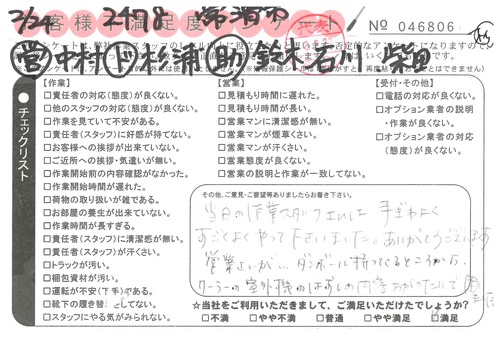 3/24 2478 常滑市
お客様不満足度アンケート
No 046806
営 中村 ド 杉浦 助 鈴木 石川 柴田
チェックリスト
【作業】
□責任者の対応(態度)が良くない。
□他のスタッフの対応(態度)が良くない。
□作業を見ていて不安がある。
□責任者(スタッフ)に好感が持てない。
□お客様への挨拶が出来ていない。
□ご近所への挨拶・気遣いが無い。
□作業開始前の内容確認がなかった。
□作業開始時間が遅れた。
□荷物の取り扱いが雑である。
□お部屋の養生が出来ていない。
□作業時間が長すぎる。
□責任者(スタッフ)に清潔感が無い。
□責任者(スタッフ)が汗くさい。
□トラックが汚い。
□梱包資材が汚い。
□運転が不安(下手)である。
□靴下の履き替えしてない。
□スタッフにやる気がみられない。
【営業】
□見積もり時間に遅れた。
□見積もり時間が長い。
□営業マンに清潔感が無い。
□営業マンが煙草くさい。
□営業マンが汗くさい。
□営業態度が良くない。
□営業の説明と作業が一致してない。
【受付・その他】
□電話の対応が良くない。
□オプション業者の説明
・作業が良くない。
□オプション業者の対応
(態度)が良くない。
その他、ご意見・ご要望等ありましたらお書き下さい。
当日の作業スタッフさんは 手ぎわよく
すごくよくやって下さいました。ありがとうございます
営業さんが、ダンボール持って
クーラーの室外機のはずしの
☆当社をご利用いただきまして、ご満足いただけたでしょうか?
□不満 □やや不満 □普通 □やや満足 □満足